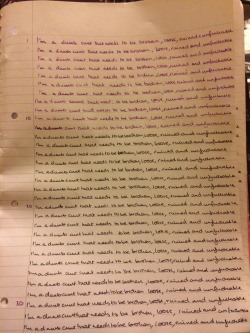 1 I'm a dumb cunt that needs to be broken, loose, ruined and unfuckable
I'm a dumb cunt that needs to be broken, loose, ruined and unfuckable
I'm a dumb cunt that needs to be broken, loose, ruined and unfuckable
I'm a dumb cunt that needs to be broken, loose, ruined and unfuckable
I'm a dumb cunt that needs to be broken, loose, ruined and unfuckable
I'm a dumb cunt that needs to be broken, loose, ruined and unfuckable
I'm a dumb cunt that needs to be broken, loose, ruined and unfuckable
I'm a dumb cunt that needs to be broken, loose, ruined and unfuckable
I'm a dumb cunt that needs to be broken, loose, ruined and unfuckable
10 I'm a dumb cunt that needs to be broken, loose, ruined and unfuckable
I'm a dumb cunt that needs to be broken, loose, ruined and unfuckable
I'm a dumb cunt that needs to be broken, loose, ruined and unfuckable
I'm a dumb cunt that needs to be broken, loose, ruined and unfuckable
I'm a dumb cunt that needs to be broken, loose, ruined and unfuckable
I'm a dumb cunt that needs to be broken, loose, ruined and unfuckable
I'm a dumb cunt that needs to be broken, loose, ruined and unfuckable
I'm a dumb cunt that needs to be broken, loose, ruined and unfuckable
I'm a dumb cunt that needs to be broken, loose, ruined and unfuckable
I'm a dumb cunt that needs to be broken, loose, ruined and unfuckable
20 I'm a dumb cunt that needs to be broken, loose, ruined and unfuckable
I'm a dumb cunt that needs to be broken, loose, ruined and unfuckable
I'm a dumb cunt that needs to be broken, loose, ruined and unfuckable
I'm a dumb cunt that needs to be broken, loose, ruined and unfuckable
I'm a dumb cunt that needs to be broken, loose, ruined and unfuckable
I'm a dumb cunt that needs to be broken, loose, ruined and unfuckable
I'm a dumb cunt that needs to be broken, loose, ruined and unfuckable
I'm a dumb cunt that needs to be broken, loose, ruined and unfuckable
I'm a dumb cunt that needs to be broken, loose, ruined and unfuckable
I'm a dumb cunt that needs to be broken, loose, ruined and unfuckable
30 I'm a dumb cunt that needs to be broken, loose, ruined and unfuckable
I'm a dumb cunt that needs to be broken, loose, ruined and unfuckable